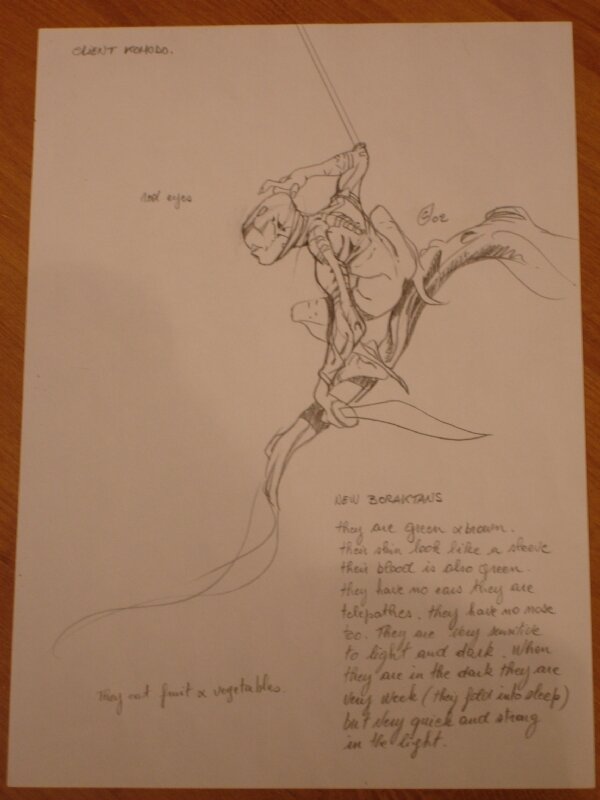 ORIENT KOMODO.
red eyes
02
NEW BORAKTANS
they are green & brown.
their skin look like a sleeve
their blood is also green.
they have no ears they are
telepathes. they have no nose
too. They are very sensitive
to light and dark. When
they are in the dark they are
very week (they fold into sleep)
but very quick and strong
in the light.
They eat fruit & vegetables.